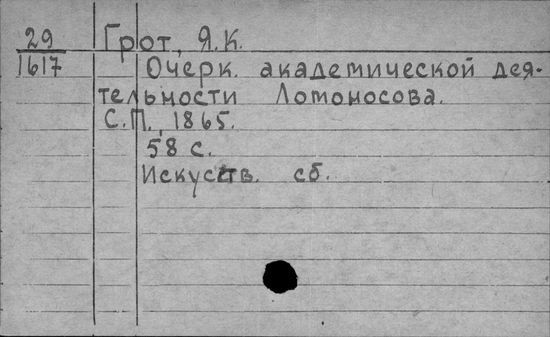 29 Грот, Я.К.
1617 Очерк академической дея-
тельности Ломоносова.
С.П., 1865.
58 с.
Искусств. сб.